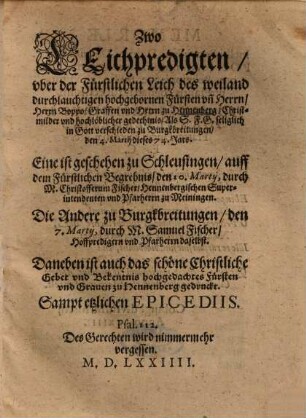 Zwo
Leichpredigten /
vber der Fürstlichen Leich des weiland
durchlauchtigen hochgebornen Fürsten vñ Herrn /
Herrn Boppo / Graffen vnd Herrn zu Hennenberg / Christ-
milder vnd hochlöblicher gedechtnis / Als S. F. G. seliglich
in Gott verschieden zu Burgkbreitungen /
den 4. Martij dieses 74. Jars.
Eine ist geschehen zu Schleusingen / auff
dem Fürstlichen Begrebnis / den 10. Marty, durch
M. Christofferum Fischer / Hennenbergischen Super-
intendenten vnd Pfarherrn zu Meiningen.
Die Andere zu Burgkbreitungen / den
7. Marty, durch M. Samuel Fischer /
Hoffpredigern vnd Pfarherrn daselbst.
Daneben ist auch das schöne Christliche
Gebet vnd Bekentnis hochgedachtes Fürsten
vnd Grauen zu Hennenberg gedruckt.
Sampt etzlichen EPICEDIIS.
Psal. 112.
Des Gerechten wird nimmermehr
vergessen.
M. D. LXXIIII.